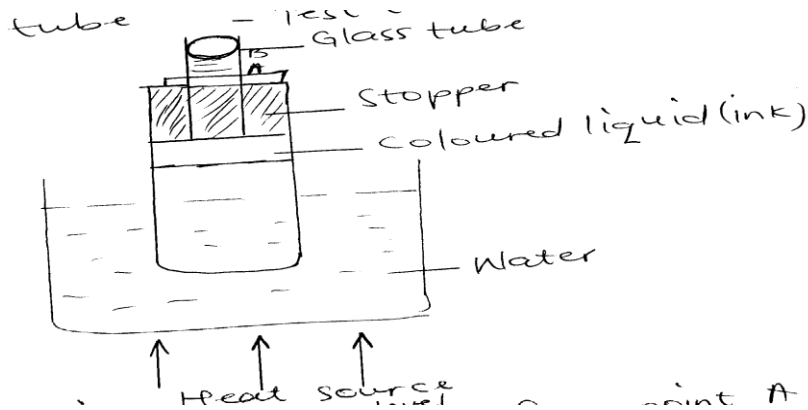 tube - Test
Glass tube
B
A
Stopper
Coloured liquid (ink)
Water
Heat source
level point A